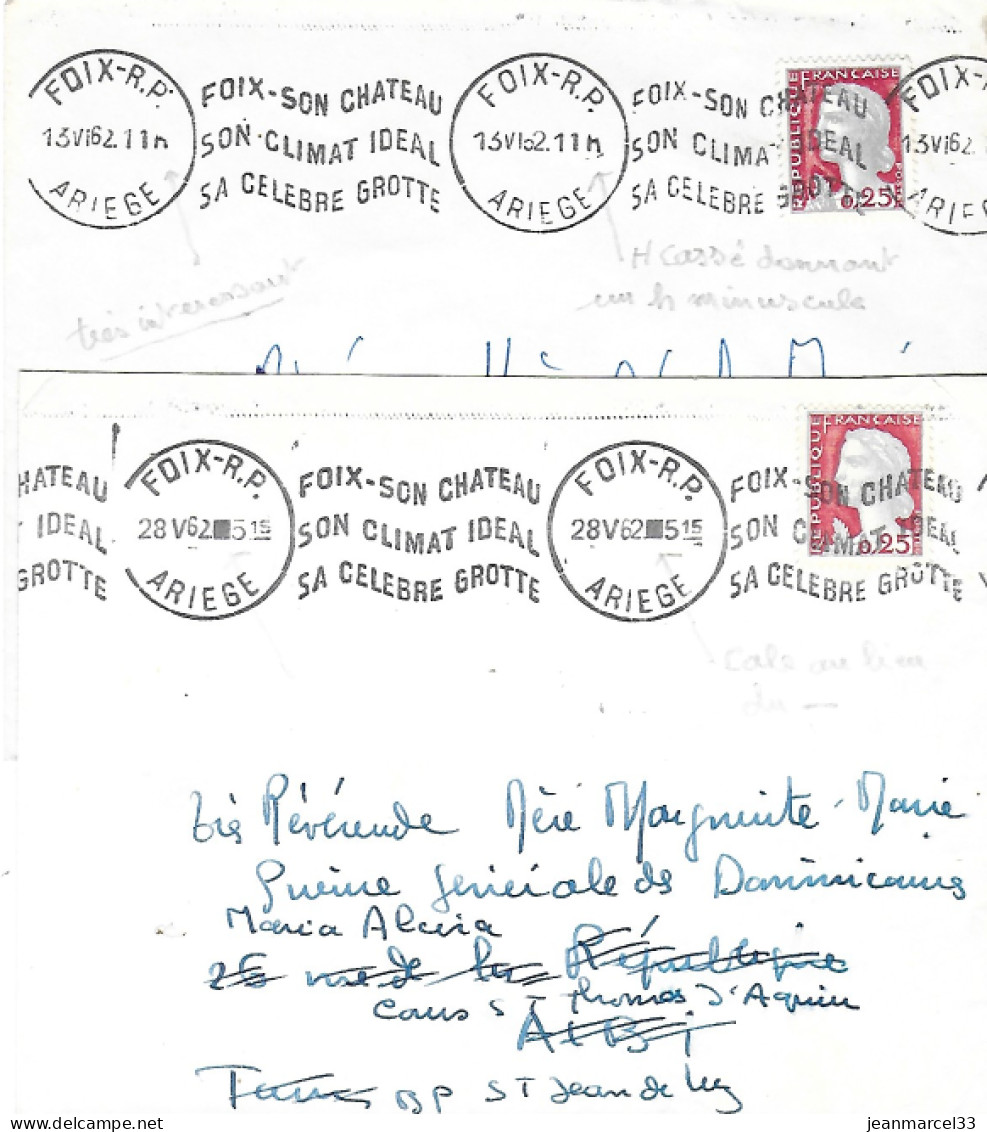 FOIX-R.P. 13VI62.11h ARIEGE
FOIX-SON CHATEAU
SON CLIMAT IDEAL
SA CELEBRE GROTTE
FOIX-R.P. 13VI62.11h ARIEGE
FOIX-SON CHATEAU
SON CLIMAT IDEAL
SA CELEBRE GROTTE
REPUBLIQUE FRANÇAISE
0,25
FOIX-R
13VI62.
ARIEG
très interessant
H cassé donnant
un h minuscule
HATEAU
IDEAL
GROTTE
FOIX-R.P. 28V62 515 ARIEGE
FOIX-SON CHATEAU
SON CLIMAT IDEAL
SA CELEBRE GROTTE
FOIX-R.P. 28V62 515 ARIEGE
FOIX-SON CHATEAU
SON CLIMAT IDEAL
SA CELEBRE GROTTE
REPUBLIQUE FRANÇAISE
0,25
Cale au lieu
du —
très Révérende Mère Marguerite-Marie
générale des Dominicaines
Maria
26 rue de la République
Cours St Thomas d'Aquin
AlBi
BP ST Jean de Luz
jeanmarcel33